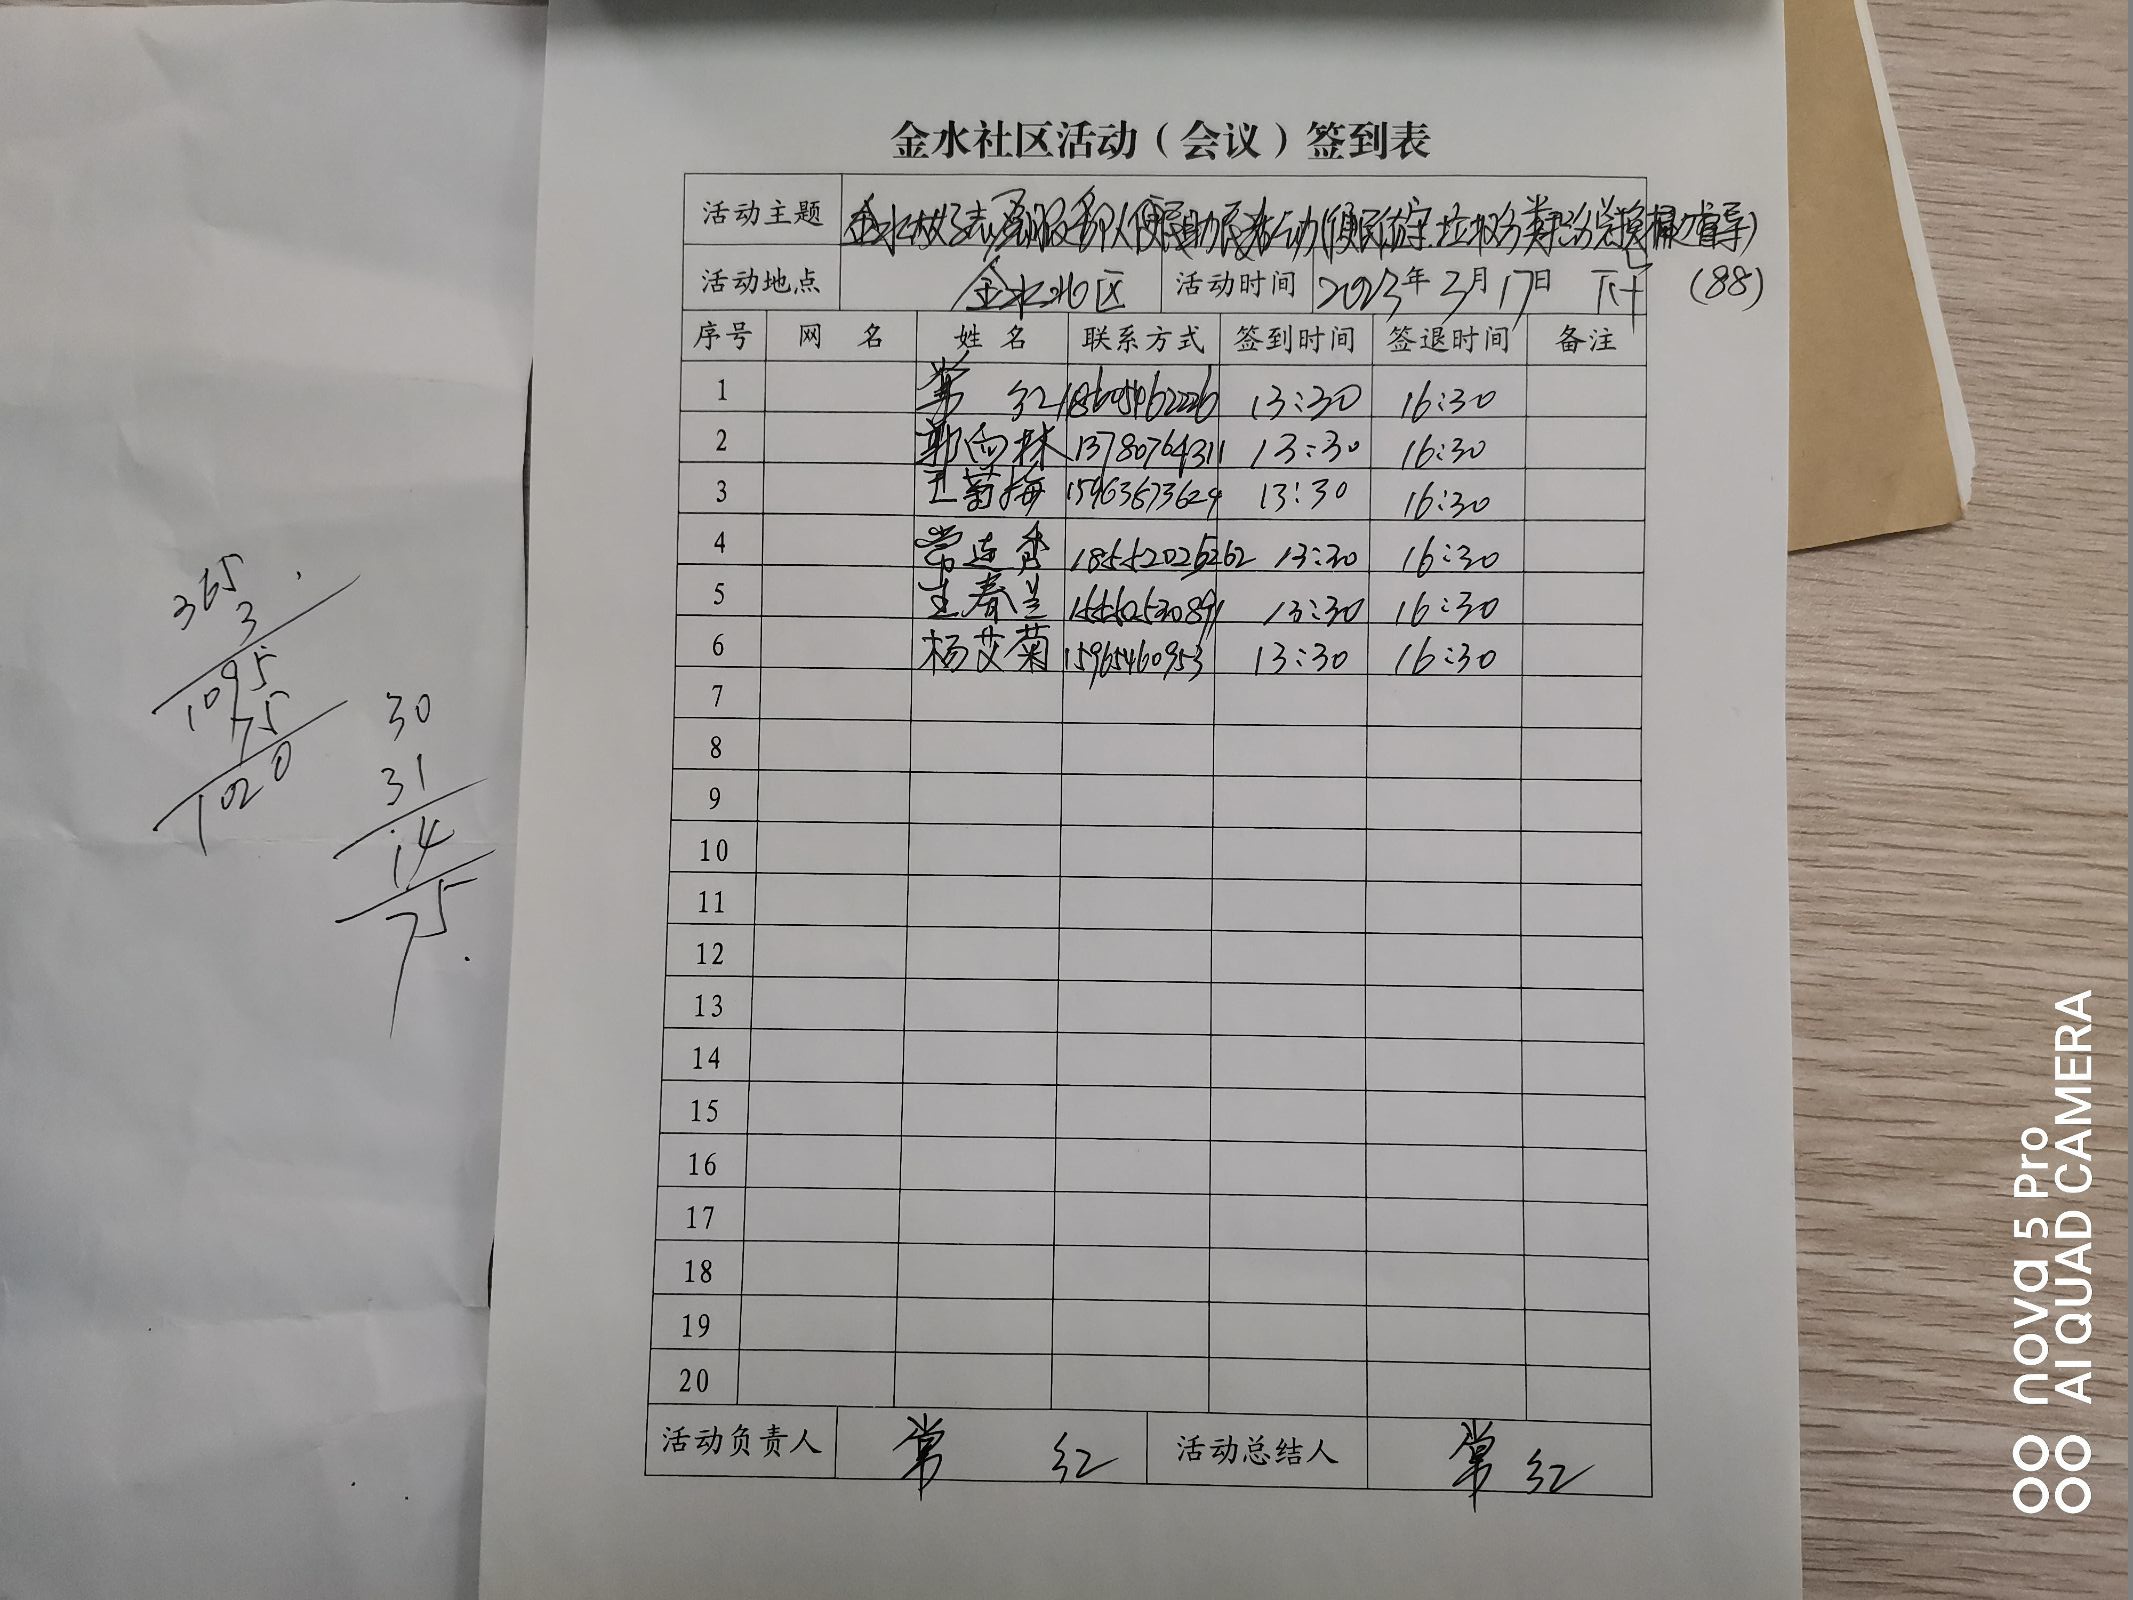 金水社区活动（会议）签到表
活动主题 金水 志愿服务 便民助民 活动(便民 垃圾分类积分兑换 桶边督导)
活动地点 金水北区 活动时间 2023年3月17日 下午 (88)
序号 网 名 姓 名 联系方式 签到时间 签退时间 备注
1 常 红 18605462226 13:30 16:30
2 郭向林 13780764311 13:30 16:30
3 王菊梅 15963673629 13:30 16:30
4 常连香 18552026262 13:30 16:30
5 王春兰 13:30 16:30
6 杨艾菊 15965460953 13:30 16:30
7
8
9
10
11
12
13
14
15
16
17
18
19
20
活动负责人 常 红 活动总结人 常 红
365
3
1095
75
1020
30
31
14
75
nova 5 Pro
AI QUAD CAMERA